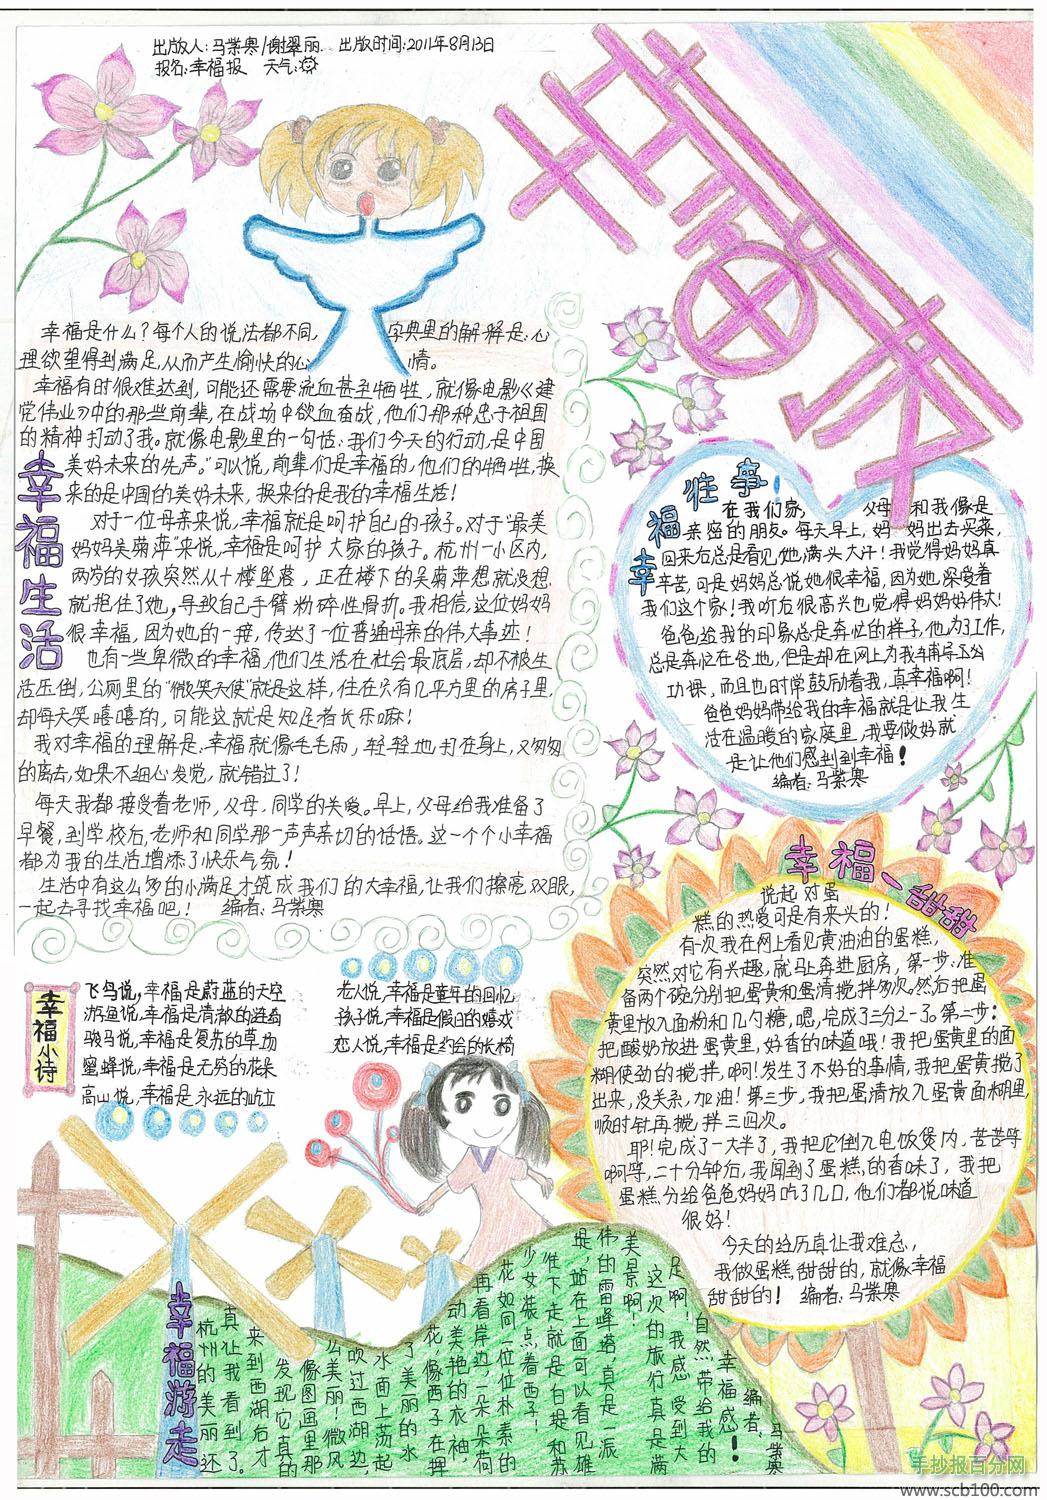 出版人:马紫寒/谢翠丽 出版时间:2011年8月13日
报名:幸福报 天气:
幸福是什么?每个人的说法都不同,字典里的解释是:心
理欲望得到满足,从而产生愉快的心情。
幸福有时很难达到,可能还需要流血甚至牺牲,就像电影《建
党伟业》中的那些前辈,在战场中欲血奋战,他们那种忠于祖国
的精神打动了我。就像电影里的一句话:我们今天的行动,是中国
美好未来的先声。”可以说,前辈们是幸福的,他们的牺牲,换
来的是中国的美好未来,换来的是我的幸福生活!
幸福生活
对于一位母亲来说,幸福就是呵护自己的孩子。对于“最美
妈妈吴菊萍”来说,幸福是呵护大家的孩子。杭州一小区内,
两岁的女孩突然从十楼坠落,正在楼下的吴菊萍想就没想
就抱住了她,导致自己手臂粉碎性骨折。我相信,这位妈妈
很幸福,因为她的一接,传达了一位普通母亲的伟大事迹!
也有一些卑微的幸福,他们生活在社会最底层,却不被生
活压倒,公厕里的“微笑天使”就是这样,住在只有几平方里的房子里,
却每天笑嘻嘻的,可能这就是知足者长乐嘛!
我对幸福的理解是:幸福就像毛毛雨,轻轻地打在身上,又匆匆
的离去,如果不细心发觉,就错过了!
每天我都接受着老师,父母,同学的关爱。早上,父母给我准备了
早餐,到学校后,老师和同学那一声声亲切的话语。这一个个小幸福
都为我的生活增添了快乐气氛!
生活中有这么多的小满足才筑成我们的大幸福,让我们擦亮双眼,
一起去寻找幸福吧! 编者:马紫寒
幸福往事!
在我们家,父母和我像是
亲密的朋友。每天早上,妈妈出去买菜,
回来后总是看见她满头大汗!我觉得妈妈真
辛苦,可是妈妈总说她很幸福,因为她深爱着
我们这个家!我听后很高兴也觉得妈妈好伟大!
爸爸给我的印象总是奔忙的样子,他为了工作,
总是奔忙在各地,但是却在网上为我辅导
功课,而且也时常鼓励着我,真幸福啊!
爸爸妈妈带给我的幸福就是让我生
活在温暖的家庭里,我要做好就
是让他们感到到幸福!
编者:马紫寒
幸福一甜甜
说起对蛋
糕的热爱可是有来头的!
有次我在网上看见黄油油的蛋糕,
突然对它有兴趣,就马上奔进厨房,第一步:准
备两个碗,分别把蛋黄和蛋清搅拌多次,然后把蛋
黄里放入面粉和几勺糖,嗯,完成了三分2-了。第二步:
把酸奶放进蛋黄里,好香的味道哦!我把蛋黄里的面
糊使劲的搅拌,啊!发生了不好的事情,我把蛋黄搅了
出来,没关系,加油!第三步,我把蛋清放入蛋黄面糊里,
顺时针再搅拌三四次。
耶!完成了一大半了,我把它倒入电饭煲内,苦苦等
啊等,二十分钟后,我闻到了蛋糕的香味了,我把
蛋糕分给爸爸妈妈吃了几口,他们都说味道
很好!
今天的经历真让我难忘,
我做蛋糕,甜甜的,就像幸福
甜甜的! 编者:马紫寒
幸福小诗
飞鸟说,幸福是蔚蓝的天空
游鱼说,幸福是清澈的
骏马说,幸福是复苏的草场
蜜蜂说,幸福是无穷的花朵
高山说,幸福是永远的屹立
老人说,幸福是童年的回忆
孩子说,幸福是假日的嬉戏
恋人说,幸福是约会的长椅
幸福游走
杭州的美丽还
真让我看到了。
来到西湖后才
发现它真的
像图画里那
么美丽!微风
吹过西湖边,
水面上荡起
了美丽的水
花,像西子在挥
动美艳的衣袖,
再看岸边,一朵朵荷
花如同一位位朴素的
少女装点着西子!
往下走就是白堤和苏
堤,站在上面可以看见雄
伟的雷峰塔,真是一派
美景啊!
这次的旅行真是满
足啊!我感受到大
自然带给我的
幸福感!
编者:马紫寒
手抄报百分网
www.scb100.com